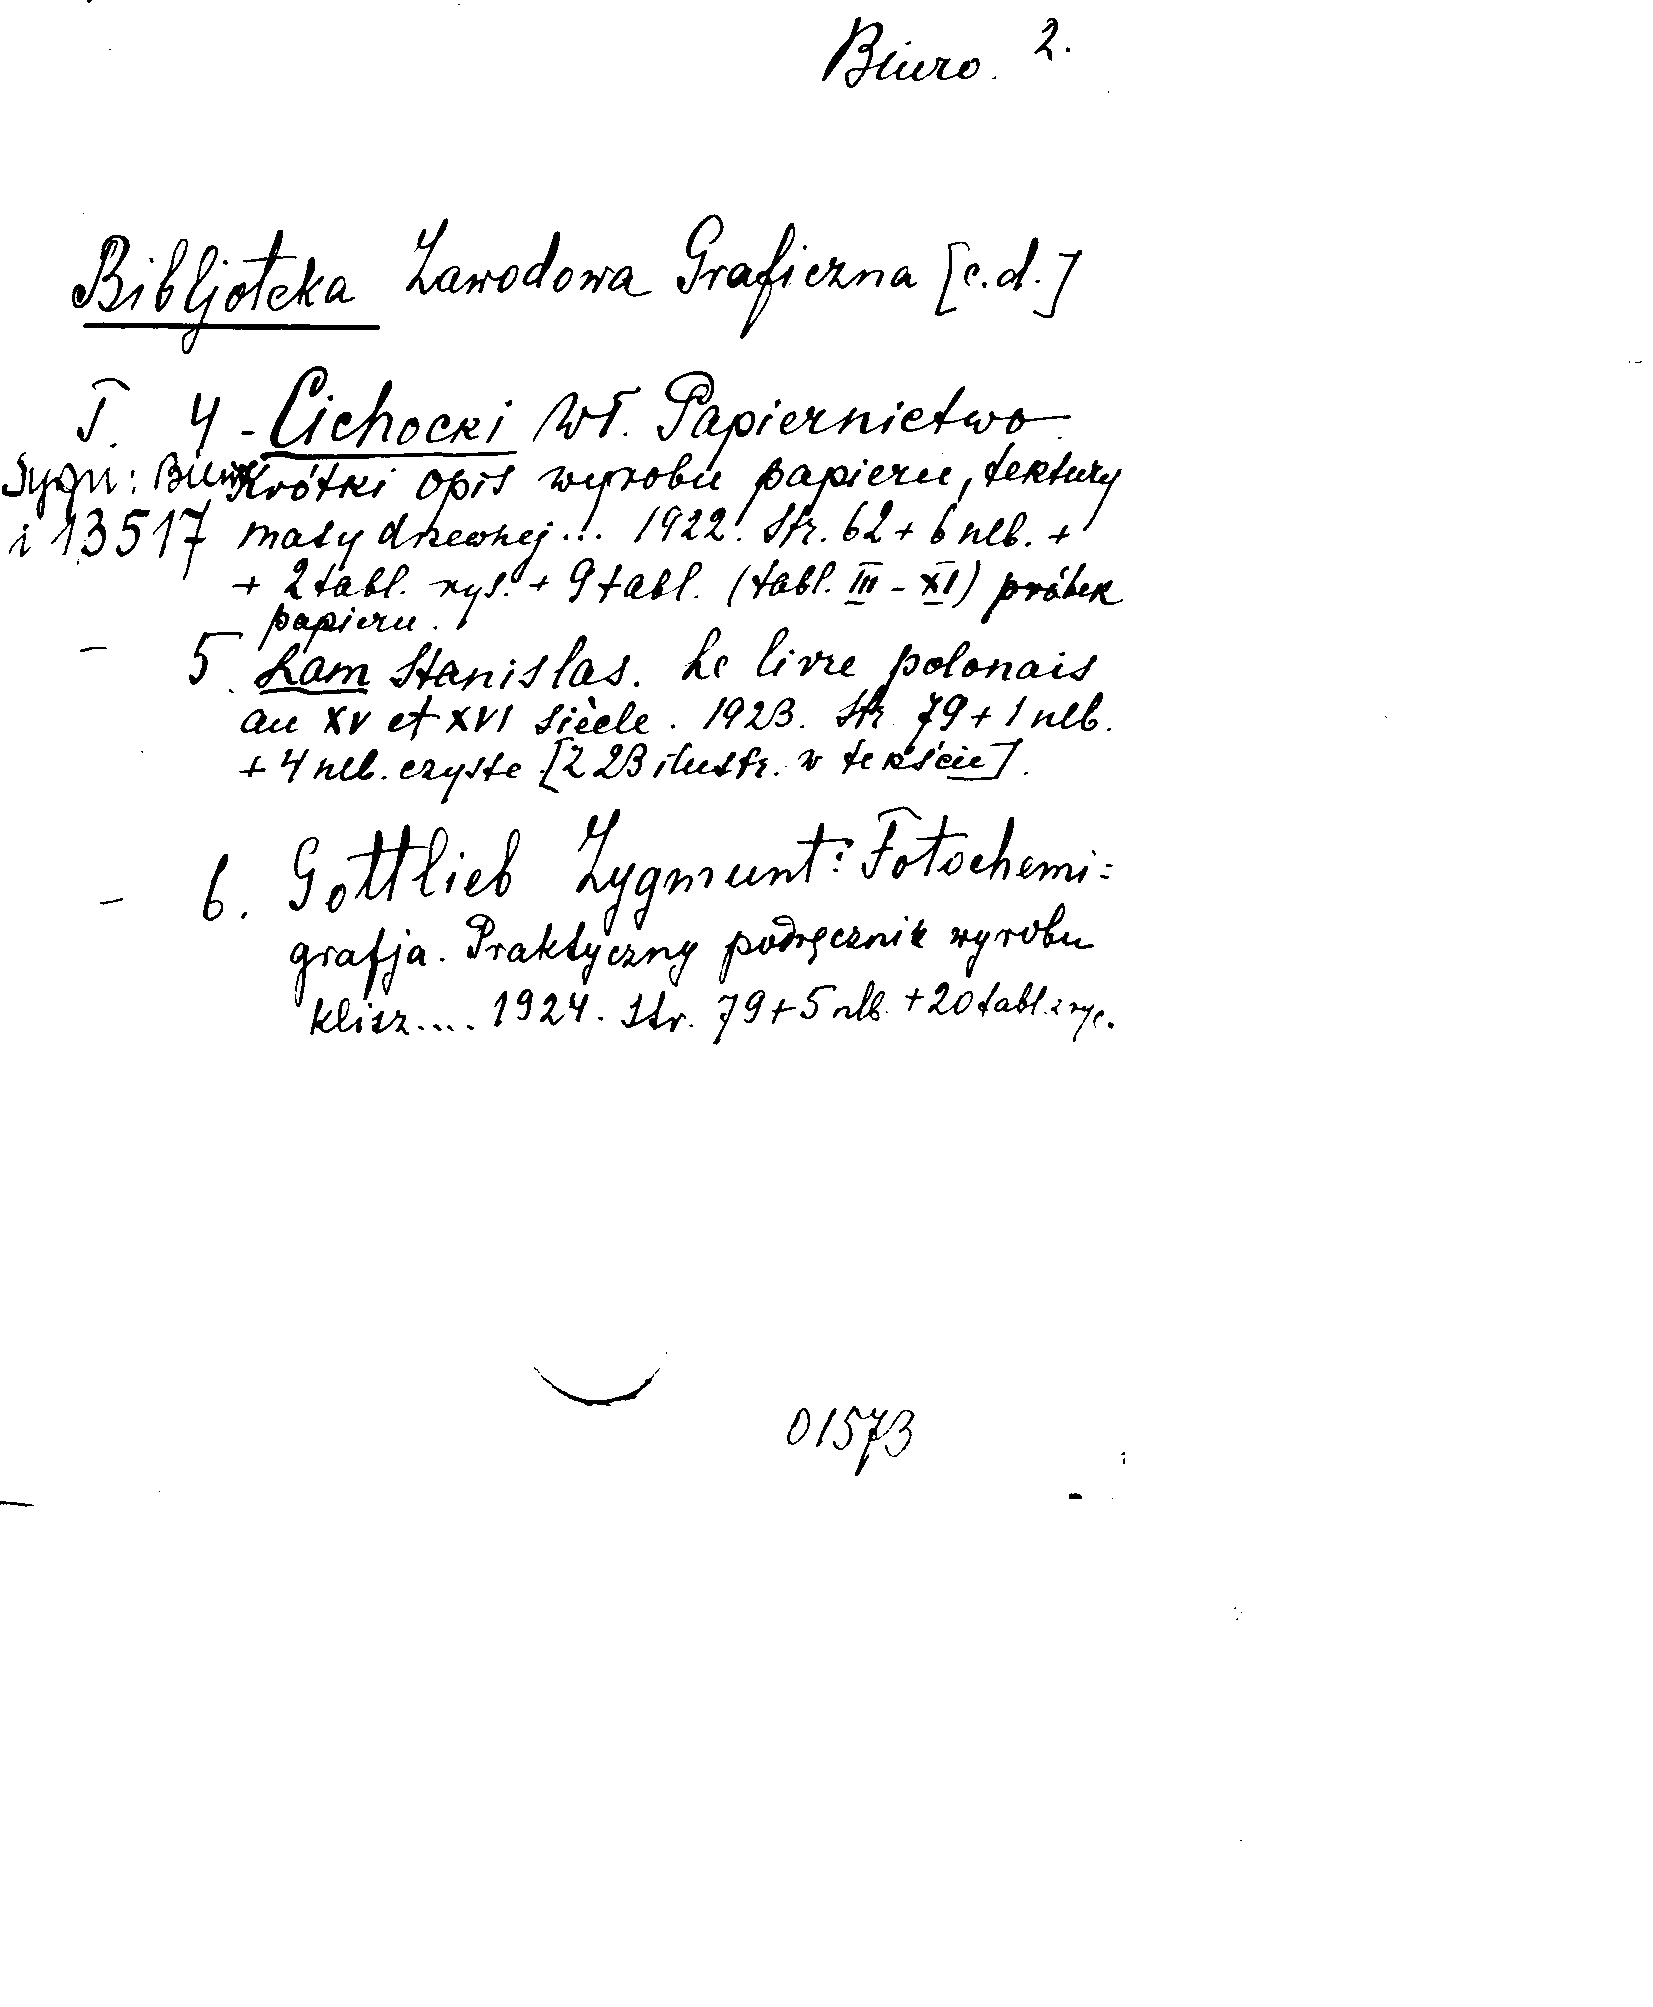 Biuro. 2.
Bibljoteka Zawodowa Graficzna [c.d.]
T. 4 - Cichocki Wł. Papiernictwo
Sygn: Biuro Krótki opis wyrobu papieru, tektury
i 13517 masy drzewnej... 1922. Str. 62 + 6 nlb. +
+ 2 tabl. rys. + 9 tabl. (tabl. III - XI) próbek
papieru.
- 5. Lam Stanislas. Le livre polonais
au XV et XVI siècle. 1923. Str. 79 + 1 nlb.
+ 4 nlb. czyste [z 23 ilustr. w tekście].
- 6. Gottlieb Zygmunt: Fotochemi-
grafja. Praktyczny podręcznik wyrobu
klisz.... 1924. Str. 79 + 5 nlb. + 20 tabl. z ryc.
01573